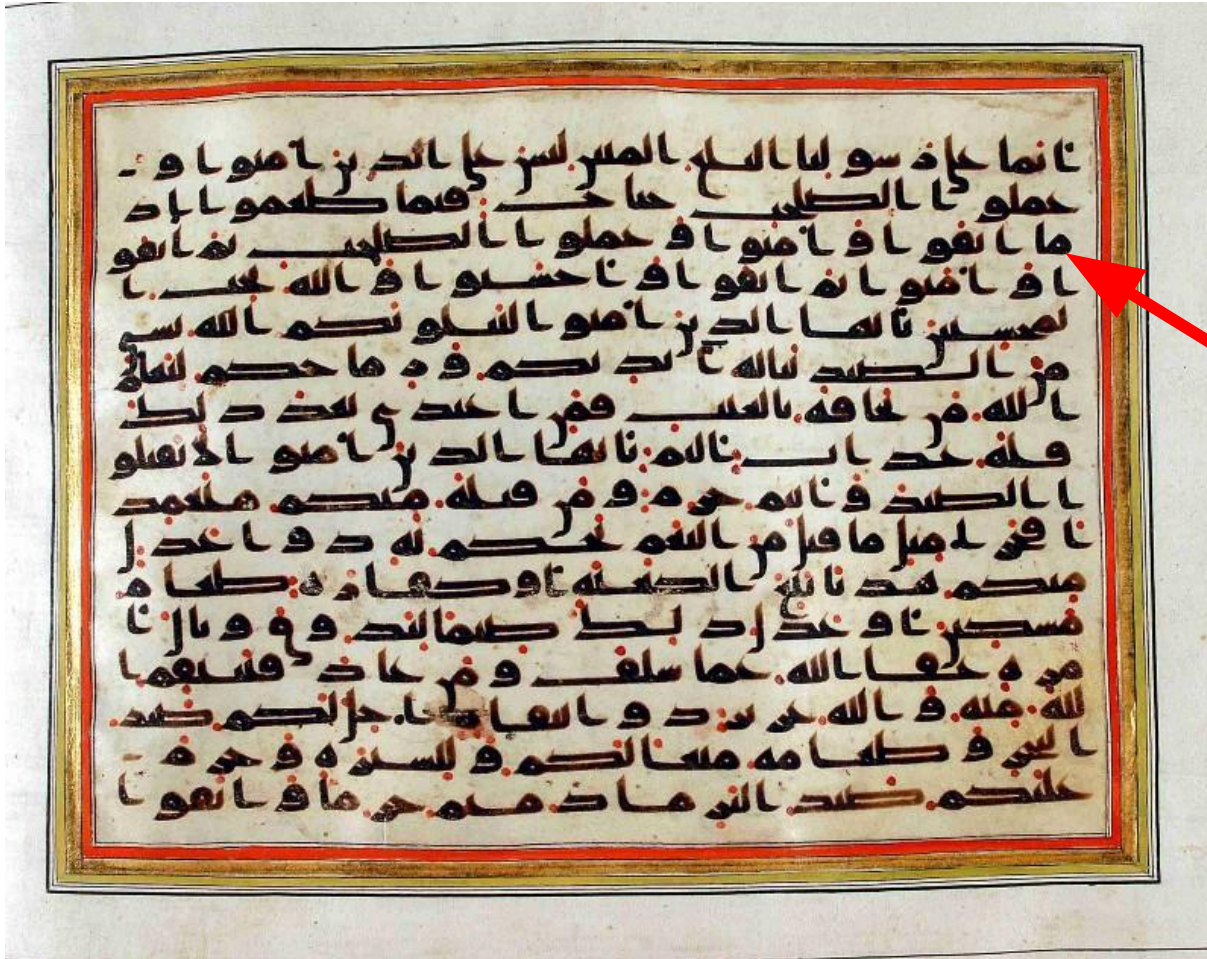 انما على رسولنا البلغ المبين ليس على الذين امنوا و
عملوا الصلحت جناح فيما طعموا اذا
ما اتقوا وامنوا وعملوا الصلحت ثم اتقو
ا وامنوا ثم اتقوا واحسنوا والله يحب ا
لمحسنين يايها الذين امنوا ليبلونكم الله بشى
من الصيد تناله ايديكم ورماحكم ليعلم
الله من يخافه بالغيب فمن اعتدى بعد ذلك
فله عذاب اليم يايها الذين امنوا لا تقتلو
ا الصيد وانتم حرم ومن قتله منكم متعمد
ا فجزا مثل ما قتل من النعم يحكم به ذوا عدل
منكم هديا بلغ الكعبة او كفارة طعام
مسكين او عدل ذلك صياما ليذوق وبال ا
مره عفا الله عما سلف ومن عاد فينتقم ا
لله منه والله عزيز ذو انتقام احل لكم صيد
البحر وطعامه متعا لكم وللسيرة وحرم
عليكم صيد البر ما دمتم حرما واتقوا ا